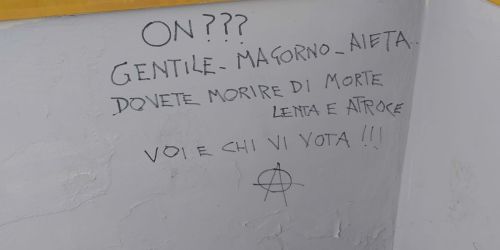 ON???
GENTILE- MAGORNO- AIETA.
DOVETE MORIRE DI MORTE
LENTA E ATROCE
VOI E CHI VI VOTA !!!